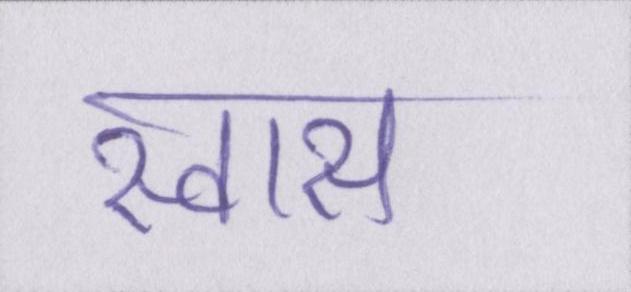 स्वास